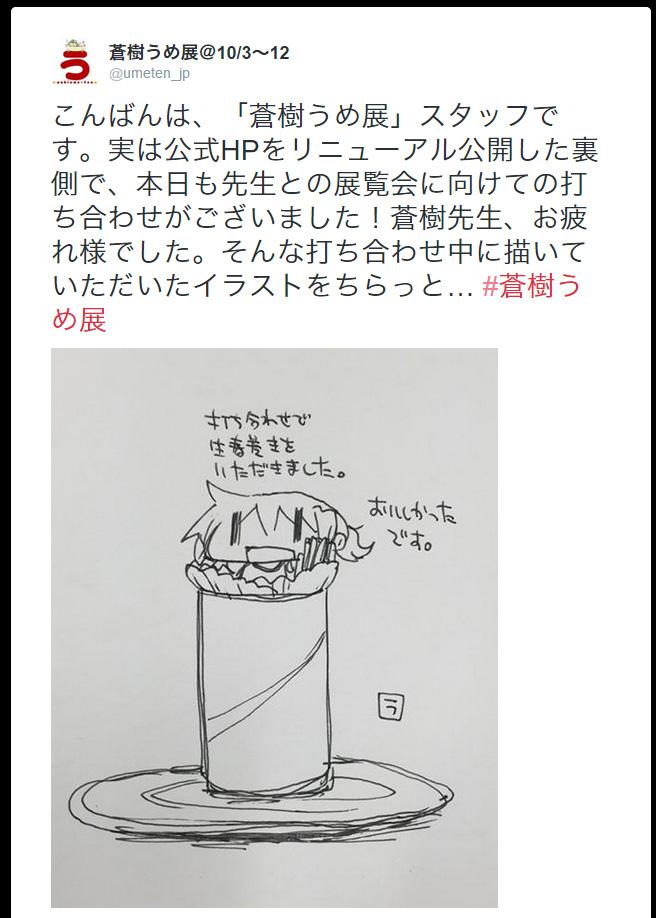 蒼樹うめ展@10/3～12
@umeten_jp
こんばんは、「蒼樹うめ展」スタッフで
す。実は公式HPをリニューアル公開した裏
側で、本日も先生との展覧会に向けての打
ち合わせがございました！蒼樹先生、お疲
れ様でした。そんな打ち合わせ中に描いて
いただいたイラストをちらっと... #蒼樹う
め展
打ち合わせで
生春巻きを
いただきました。
おいしかった
です。
う